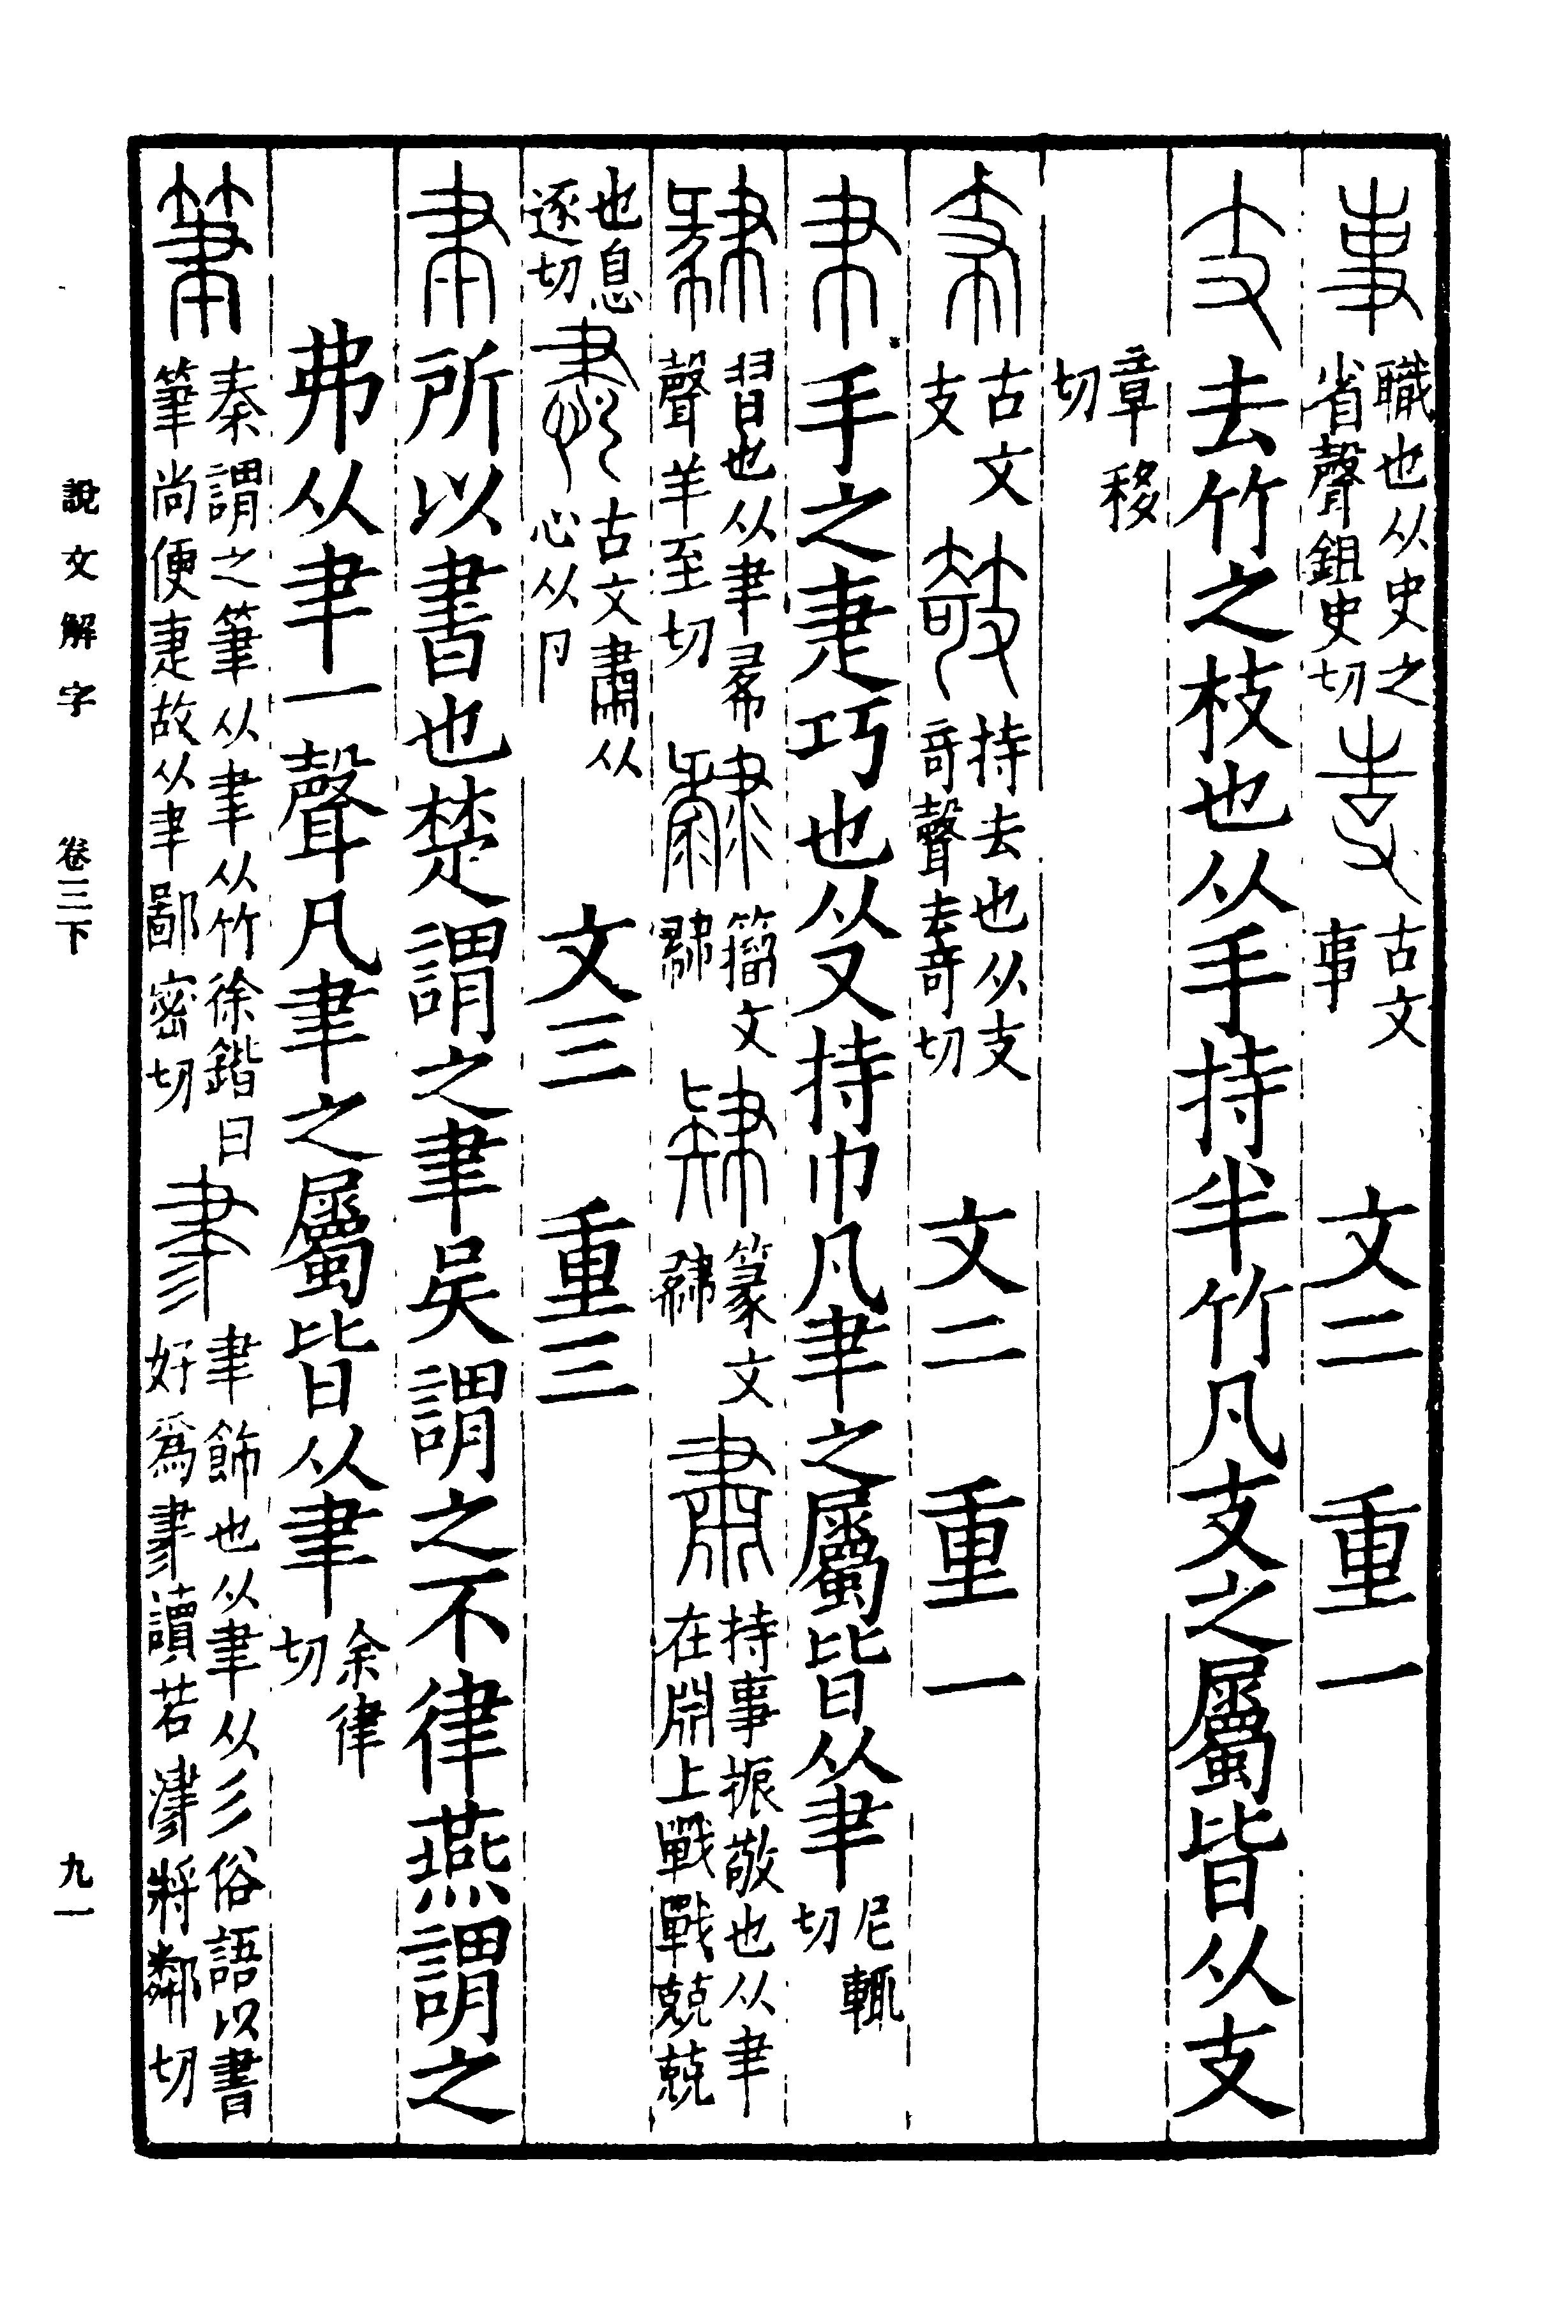 事 職也从史之省聲鉏史切 古文事 文二 重一
支 去竹之枝也从手持半竹凡支之屬皆从支
章移切
𠦙 古文支 攲 持去也从支奇聲去奇切 文二 重一
𦘒 手之疌巧也从又持巾凡𦘒之屬皆从𦘒 尼輒切
𦘡 習也从𦘒㣇聲羊至切 籒文𦘡 肄 篆文𦘡 肅 持事振敬也从𦘒在𣶒上戰戰兢兢
也息逐切 古文肅从心从卪 文三 重三
聿 所以書也楚謂之聿吳謂之不律燕謂之
弗从聿一聲凡聿之屬皆从聿 余律切
筆 秦謂之筆从聿从竹徐鍇曰筆尚便疌故从聿鄙密切 𦘔 聿飾也从聿从彡俗語以書好爲𦘔讀若津將鄰切
說文解字 卷三下 九一